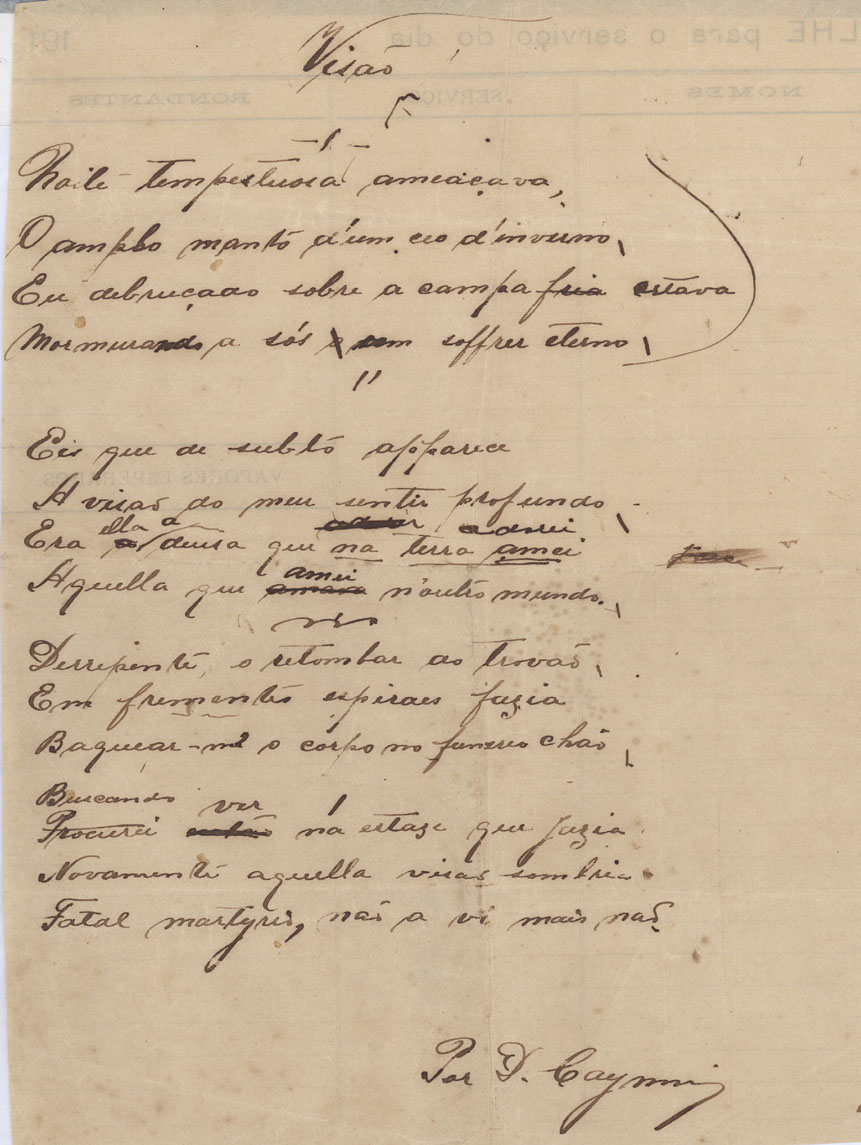 Visão
Noite tempestuosa ameaçava,
O amplo manto d'um ceo d'inverno,
Eu debruçado sobre a campa fria estava
Mormurando a sós o sem soffrer eterno,
Eis que de subto apparece
A visão do meu sentir profundo
ella a adorei
Era deusa que na terra amei
amei
Aquella que amava n'outro mundo.
Derrepente, o retombar do trovão,
Em frementes espiraes fazia
Baquear-me o corpo no funereo chão,
Buscando ver
Procurei então na estase que jazia
Novamente aquella visão sombria
Fatal martyrio, não a vi mais não.
Por D. Caymmi
LHE para o serviço do dia 191
NOMES SERVIÇO RONDANTES
VAPORES ESPERADOS